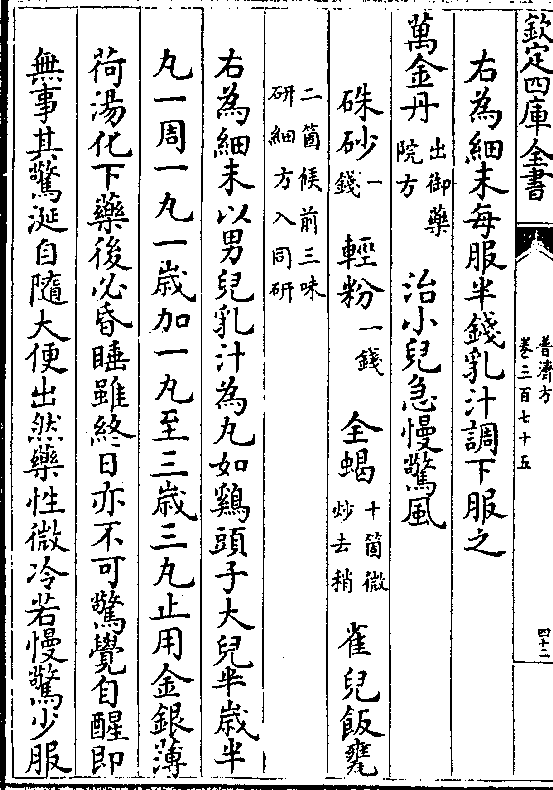 欽定四庫全書
普濟方
卷三百七十五
四十二
右為細末每服半錢乳汁調下服之
萬金丹出御藥院方 治小兒急慢驚風
硃砂一錢 輕粉一錢 全蝎十箇微炒去稍 雀兒飯甕
二箇候前三味研細方入同研
右為細末以男兒乳汁為丸如鷄頭子大兒半歳半
丸一周一丸一歳加一丸至三歳三丸止用金銀薄
荷湯化下藥後必昏睡雖終日亦不可驚覺自醒即
無事其驚涎自隨大便出然藥性微冷若慢驚少服